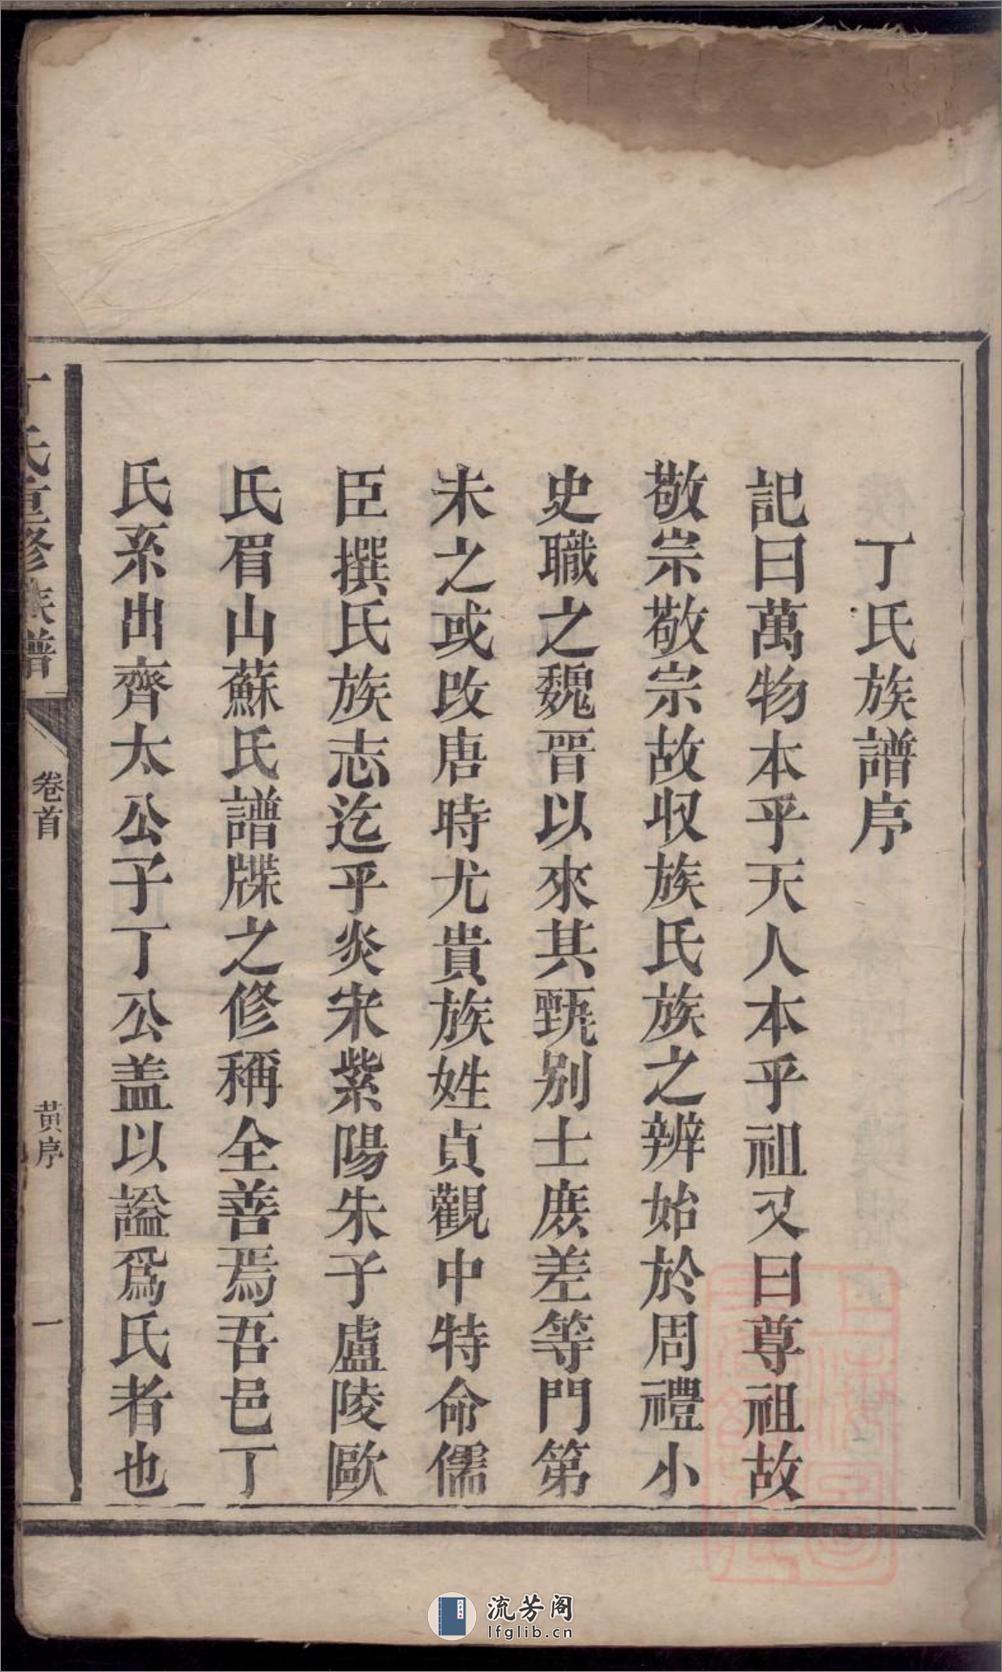 丁氏族譜序
記曰萬物本乎天人本乎祖又曰尊祖故
敬宗敬宗故收族氏族之辨始於周禮小
史職之魏晉以來其甄别士庶差等門第
未之或改唐時尤貴族姓貞觀中特命儒
臣撰氏族志迄乎炎宋紫陽朱子盧陵歐
氏眉山蘇氏譜牒之修稱全善焉吾邑丁
氏系出齊太公子丁公盖以謚爲氏者也
丁氏重修族譜
卷首
黄序
一
流芳阁
lfglib.cn